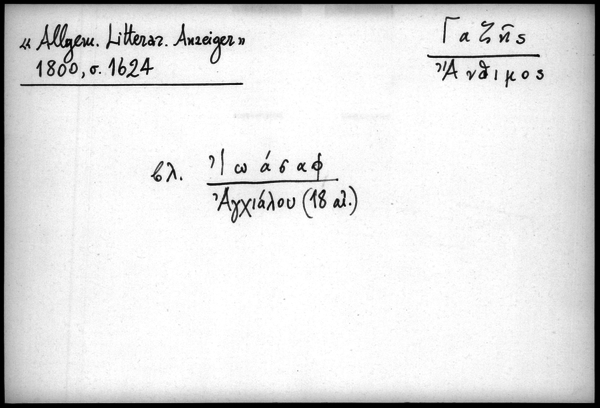 « Allgem. Litterar. Anzeiger»
1800, σ. 1624
Γαζῆς
Ἄνθιμος
βλ. Ἰωάσαφ
Ἀγχιάλου (18 αἰ.)